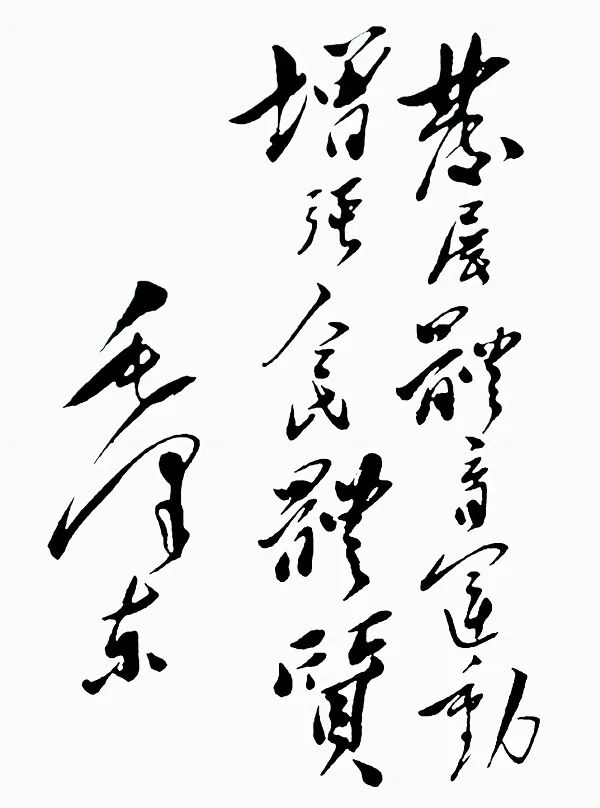 發展體育運動
增强人民體質
毛澤東